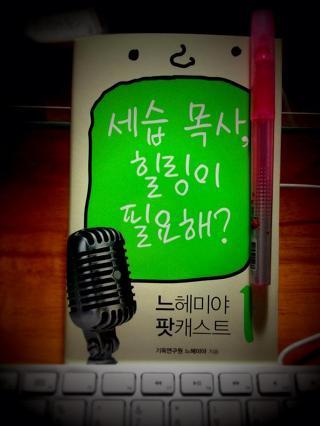 세습 목사,
힐링이
필요해?
느헤미야
팟캐스트 1
기독연구원 느헤미야 지음